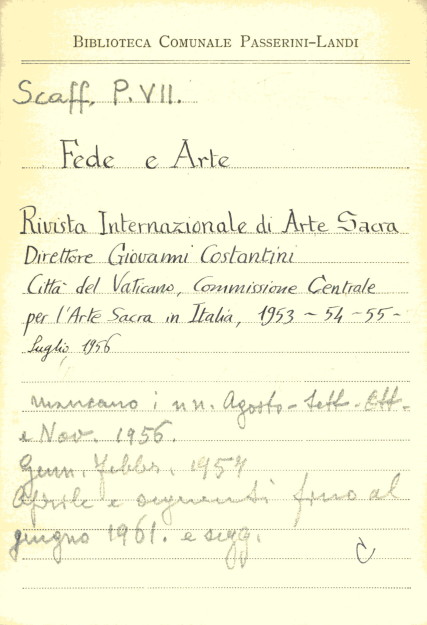 BIBLIOTECA COMUNALE PASSERINI-LANDI
Scaff. P. VII.
Fede e Arte
Rivista Internazionale di Arte Sacra
Direttore Giovanni Costantini
Città del Vaticano, Commissione Centrale
per l'Arte Sacra in Italia, 1953 - 54 - 55 -
Luglio, 1956
mancano i nn. Agosto - Sett. - Ott. -
e Nov. 1956.
Genn. Febbr. 1957
Aprile e seguenti fino al
giugno 1961. e segg.
C